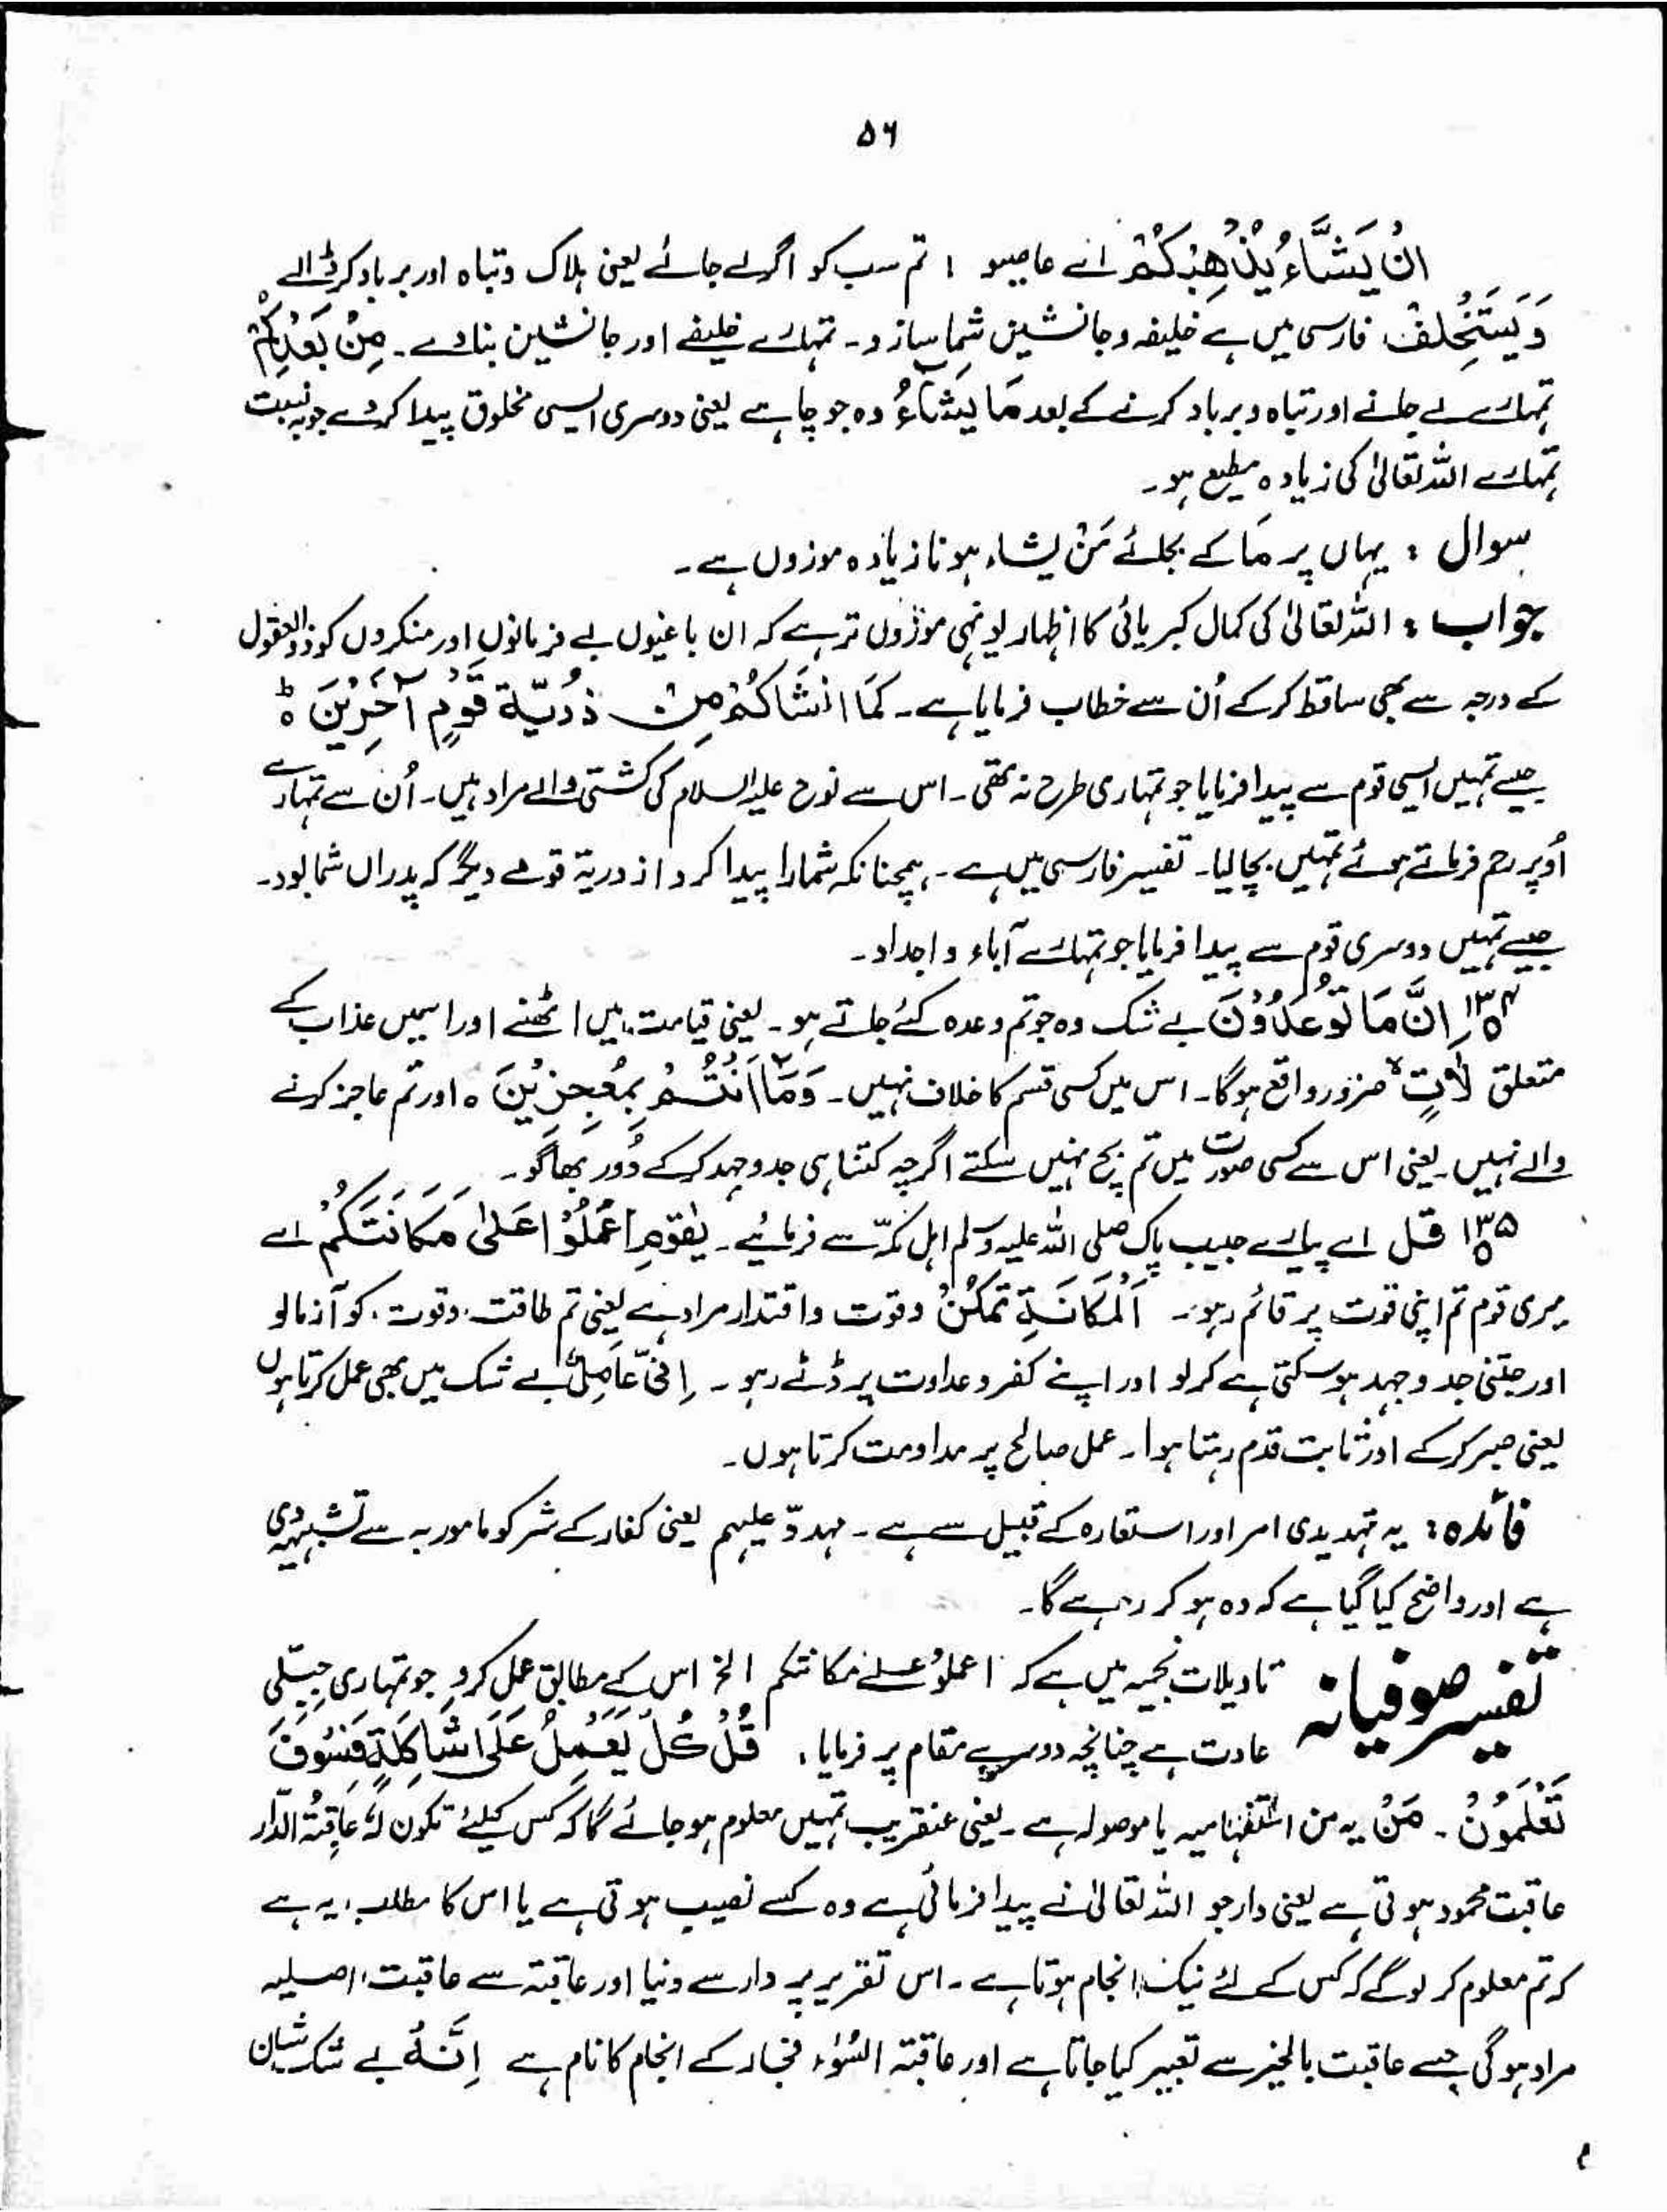 ۵۶
اِنْ یَّشَاْءُ یُذْهِبْكُمْ اے عاصیو ! تم سب کو اگر لے جائے یعنی ہلاک و تباہ اور برباد کر ڈالے
وَیَسْتَخْلِفْ فارسی میں ہے خلیفہ و جانشین شما سازد۔ تمہارے خلیفے اور جانشین بنا دے۔ مِنْ بَعْدِكُمْ
تمہارے لے جانے اور تباہ و برباد کرنے کے بعد مَا یَشَآءُ وہ جو چاہے یعنی دوسری ایسی مخلوق پیدا کر دے جو بہ نسبت
تمہارے اللہ تعالیٰ کی زیادہ مطیع ہو۔
سوال : یہاں پر مَا کے بجائے مَنْ یشاء ہونا زیادہ موزوں ہے۔
جواب : اللہ تعالیٰ کی کمال کبریائی کا اظہار یونہی موزوں تر ہے کہ ان باغیوں بے فرمانوں اور منکروں کو ذوالعقول
کے درجہ سے بھی ساقط کر کے اُن سے خطاب فرمایا ہے۔ كَمَا اَنْشَاَكُمْ مِنْ ذُرِّیَّةِ قَوْمٍ آخَرِیْنَ ۵ ط
جیسے تمہیں ایسی قوم سے پیدا فرمایا جو تمہاری طرح نہ تھی۔ اس سے نوح علیہ السلام کی کشتی والے مراد ہیں۔ اُن سے تمہارے
اُوپر رحم فرماتے ہوئے تمہیں بچا لیا۔ تفسیر فارسی میں ہے۔ ہمچنانکہ شمارا پیدا کرد از دریۃ قومے دیگر کہ پدراں شما بود۔
جیسے تمہیں دوسری قوم سے پیدا فرمایا جو تمہارے آباء و اجداد۔
۱۳۴ اِنَّ مَا تُوْعَدُوْنَ بے شک وہ جو تم وعدہ کئے جاتے ہو۔ یعنی قیامت میں اٹھنے اور اسمیں عذاب کے
متعلق لَاٰتٍ ضرور واقع ہوگا۔ اس میں کسی قسم کا خلاف نہیں۔ وَمَآ اَنْتُمْ بِمُعْجِزِیْنَ ۵ اور تم عاجز کرنے
والے نہیں۔ یعنی اس سے کسی صورت میں تم بچ نہیں سکتے اگرچہ کتنا ہی جدوجہد کر کے دُور بھاگو۔
۱۳۵ قل اے پیارے حبیب پاک صلی اللہ علیہ وسلم اہل مکہ سے فرمائیے۔ یٰقَوْمِ اعْمَلُوْا عَلیٰ مَكَانَتِكُمْ اے
میری قوم تم اپنی قوت پر قائم رہو۔ اَلْمَكَانَةِ تَمَكُّنُ و قوت و اقتدار مراد ہے یعنی تم طاقت، و قوت، کو آزمالو
اور جتنی جدوجہد ہو سکتی ہے کر لو اور اپنے کفر و عداوت پر ڈٹے رہو۔ اِنِّیْ عَامِلٌ بے شک میں بھی عمل کرتا ہوں
یعنی صبر کر کے اور ثابت قدم رہتا ہوا۔ عمل صالح پر مداومت کرتا ہوں۔
فائدہ : یہ تہدیدی امر اور استعارہ کے قبیل سے ہے۔ مہددّ علیہم یعنی کفار کے شر کو مامور بہ سے تشبیہ دی
ہے اور واضح کیا گیا ہے کہ وہ ہو کر رہے گا۔
تفسیر صوفیانہ تاویلات نجمیہ میں ہے کہ اعملوْ علےٰ مکانتکم الخ اس کے مطابق عمل کرو جو تمہاری جِبِلّی
عادت ہے چنانچہ دوسرے مقام پر فرمایا، قُلْ كُلٌّ یَعْمَلُ عَلَى شَاكِلَةٍ فَسَوْفَ
تَعْلَمُوْنَ۔ مَنْ یہ من استفہامیہ یا موصولہ ہے۔ یعنی عنقریب تمہیں معلوم ہو جائے گا کہ کس کیلئے تکون لَهٗ عَاقِبَةُ الدَّار
عاقبت محمود ہوتی ہے یعنی دار جو اللہ تعالیٰ نے پیدا فرمائی ہے وہ کسے نصیب ہوتی ہے یا اس کا مطلب، یہ ہے
کہ تم معلوم کر لو گے کہ کس کے لئے نیک انجام ہوتا ہے۔ اس تقریر پر دار سے دنیا اور عاقبۃ سے عاقبت، اصلیہ
مراد ہوگی جسے عاقبت بالخیر سے تعبیر کیا جاتا ہے اور عاقبۃ السُوْء فجار کے انجام کا نام ہے اِنَّہٗ بے شک شان